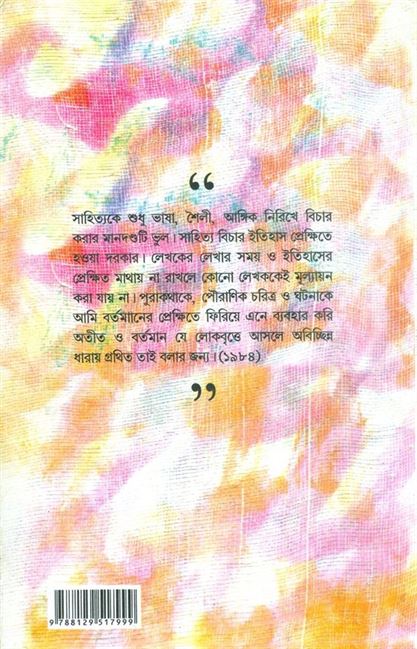 “
সাহিত্যকে শুধু ভাষা, শৈলী, আঙ্গিক নিরিখে বিচার
করার মানদণ্ডটি ভুল। সাহিত্য বিচার ইতিহাস প্রেক্ষিতে
হওয়া দরকার। লেখকের লেখার সময় ও ইতিহাসের
প্রেক্ষিত মাথায় না রাখলে কোনো লেখককেই মূল্যায়ন
করা যায় না। পুরাকথাকে, পৌরাণিক চরিত্র ও ঘটনাকে
আমি বর্তমানের প্রেক্ষিতে ফিরিয়ে এনে ব্যবহার করি
অতীত ও বর্তমান যে লোকবৃত্তে আসলে অবিচ্ছিন্ন
ধারায় গ্রথিত তাই বলার জন্য। (১৯৮৪)
”
9 788129 517999